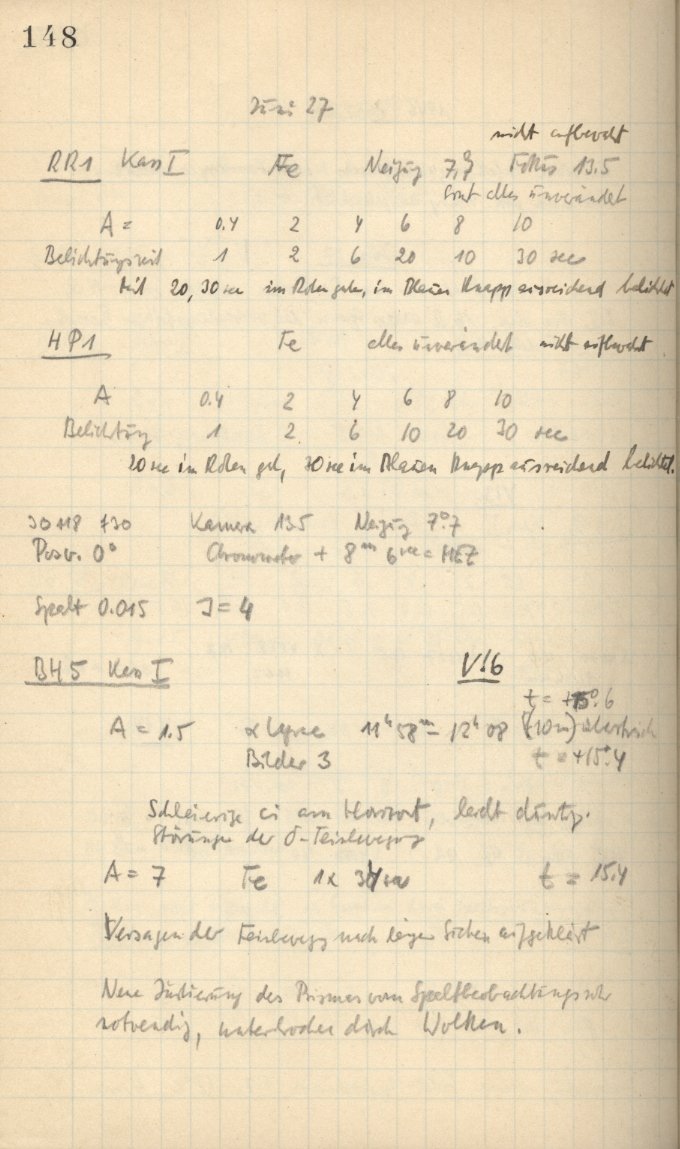 148
Juni 27
nicht aufbewahrt
RR1 Kass I Fe Neigung 7,7 Fokus 13.5
sonst alles unverändet
A = 0.4 2 4 6 8 10
Belichtungszeit 1 2 6 20 10 30 sec
Mit 20, 30 sec im Roten gut, im Blauen knapp ausreichend belichtet
HP1 Fe alles unverändet nicht aufbewahrt
A 0.4 2 4 6 8 10
Belichtung 1 2 6 10 20 30 sec
20 sec im Roten gut, 30 sec im Blauen knapp ausreichend belichtet.
30 +18 +30 Kamera 13.5 Neigung 7°.7
Posw. 0° Chronometer + 8m 6sec = MEZ
Spalt 0.015 J = 4
BH5 Kass I V!6
t = +15°.6
A = 1.5 α Lyrae 11h 58m – 12h 08 (10m)
Bilder 3 t = +15°.4
Schleierige ci am Horizont, leicht dunstig.
Störungen der δ-Feinbewegung
A = 7 Fe 1x t = 15.4
Versagen der Feinbewegung nach langem Suchen aufgeklärt
Neue Justierung des Prismas vom Spaltbeobachtungsrohr
notwendig, unterbrochen durch Wolken.